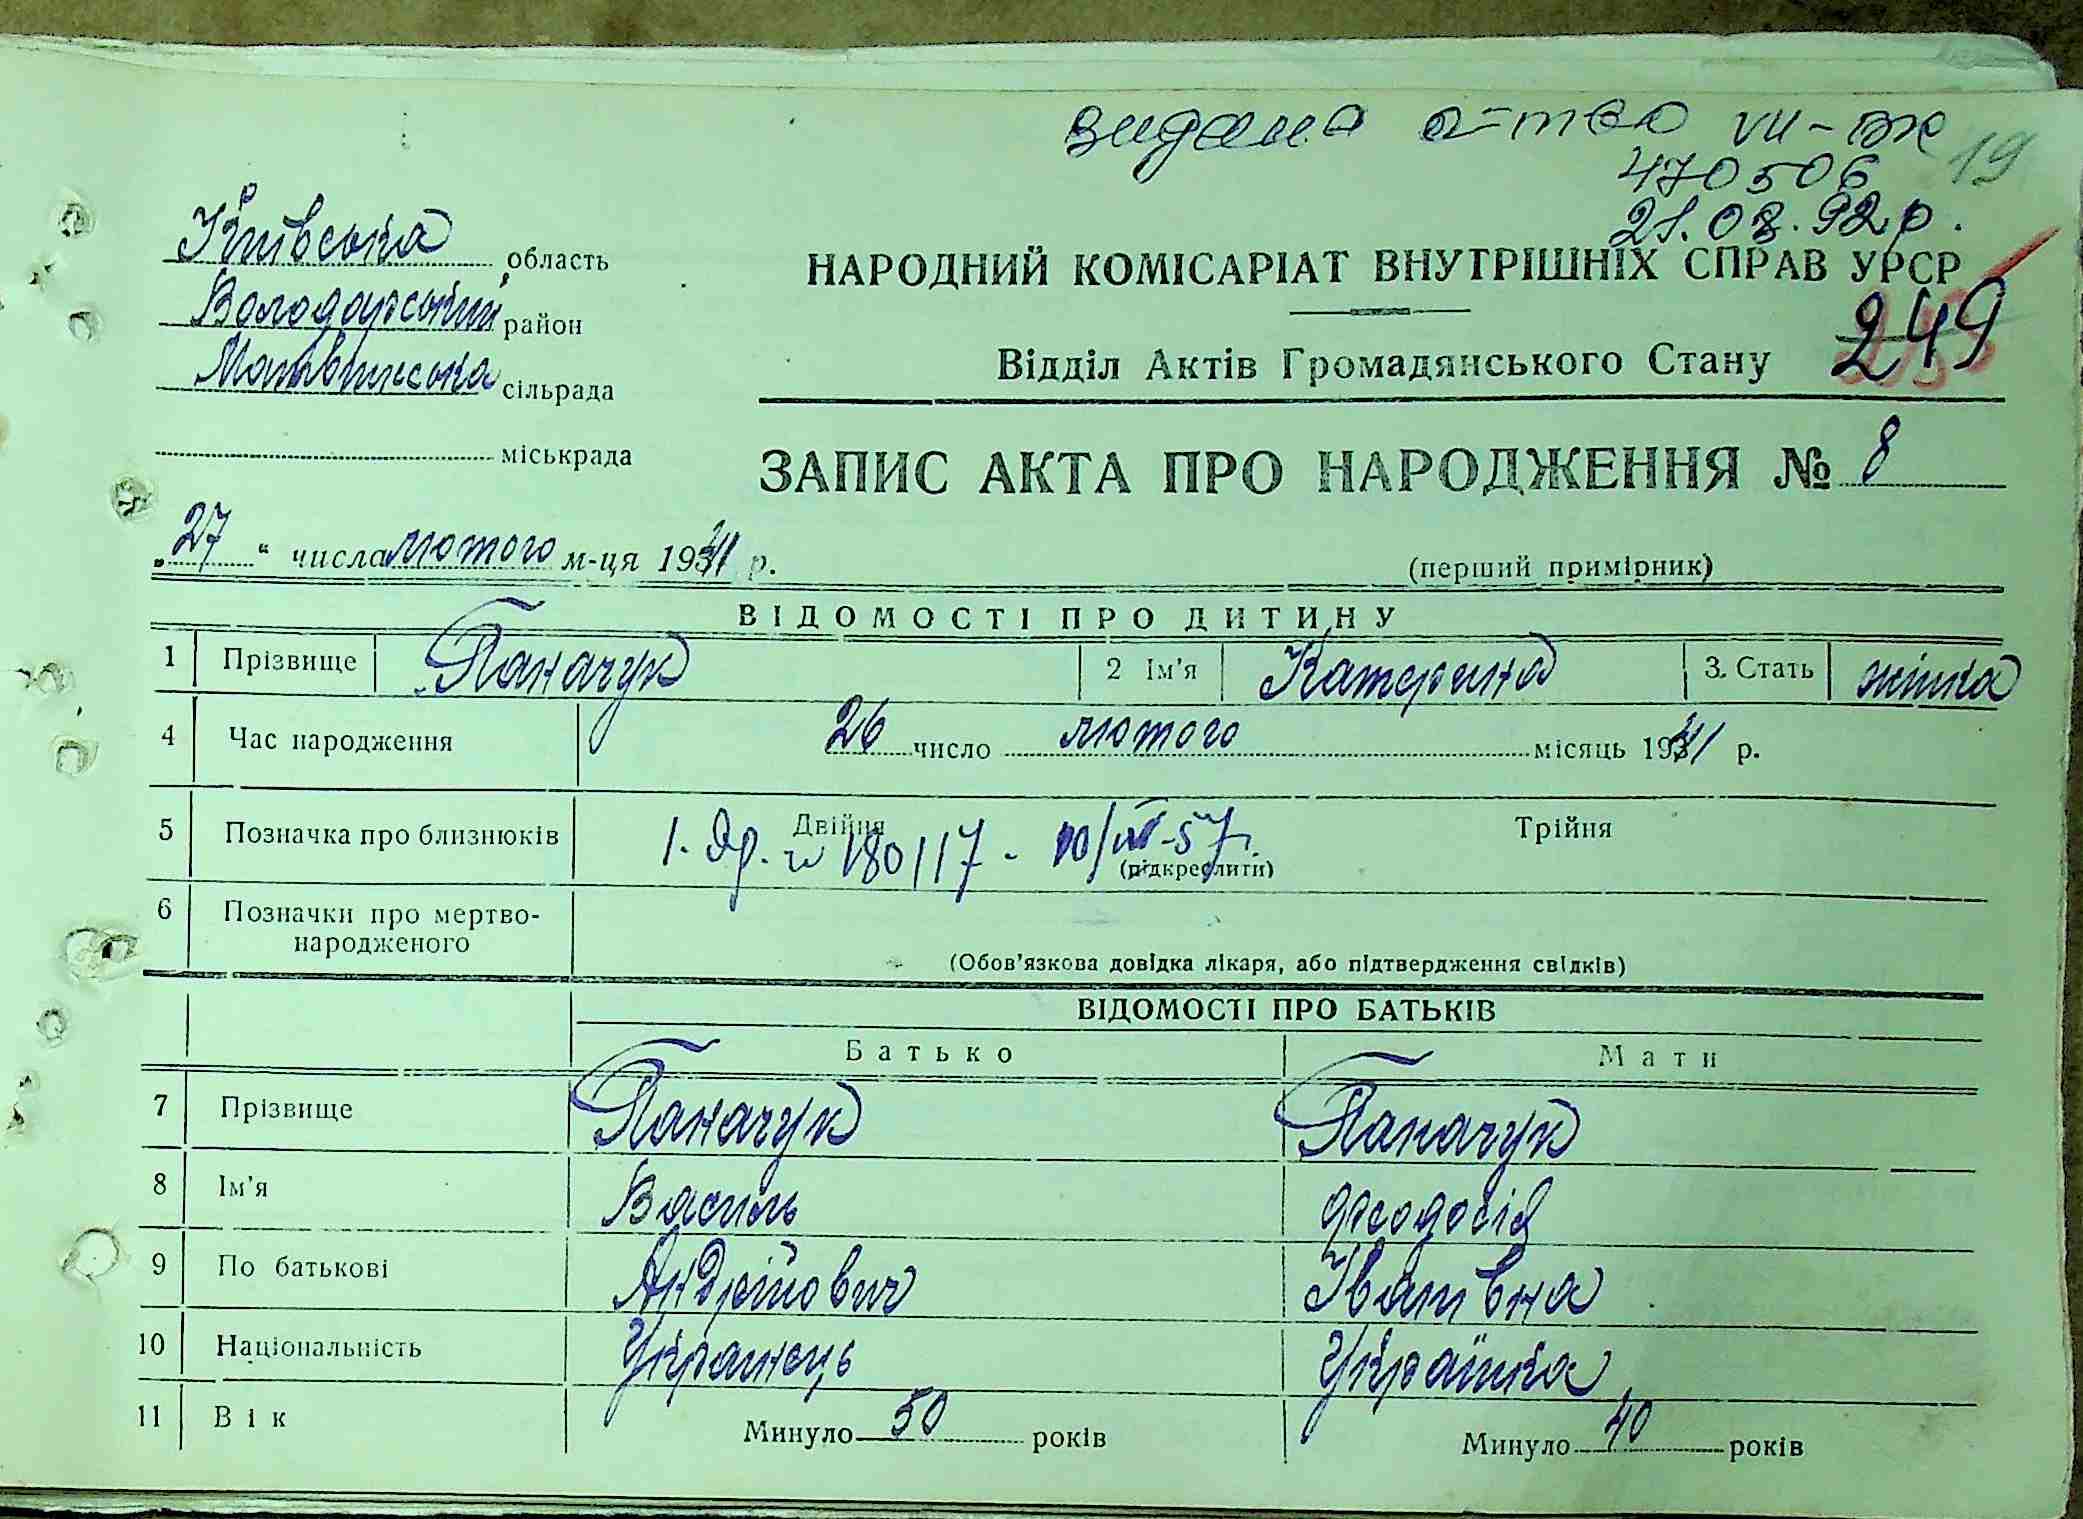 видано с-тво VII-
470506 19
21.08.92 р.
Київська область
Володарський район
сільрада
міськрада
НАРОДНИЙ КОМІСАРІАТ ВНУТРІШНІХ СПРАВ УРСР
Відділ Актів Громадянського Стану
249
ЗАПИС АКТА ПРО НАРОДЖЕННЯ № 8
„27“ числа лютого м-ця 1941 р.
(перший примірник)
ВІДОМОСТІ ПРО ДИТИНУ
1 Прізвище Паначук 2 Ім'я Катерина 3. Стать жінка
4 Час народження 26 число лютого місяць 1941 р.
5 Позначка про близнюків Двійня Трійня
(підкреслити)
180117 - 10/ -57
6 Позначки про мертво-
народженого
(Обов'язкова довідка лікаря, або підтвердження свідків)
ВІДОМОСТІ ПРО БАТЬКІВ
Батько Мати
7 Прізвище Паначук Паначук
8 Ім'я Василь Феодосія
9 По батькові Андрійович Іванівна
10 Національність Українець Українка
11 Вік Минуло 50 років Минуло 40 років